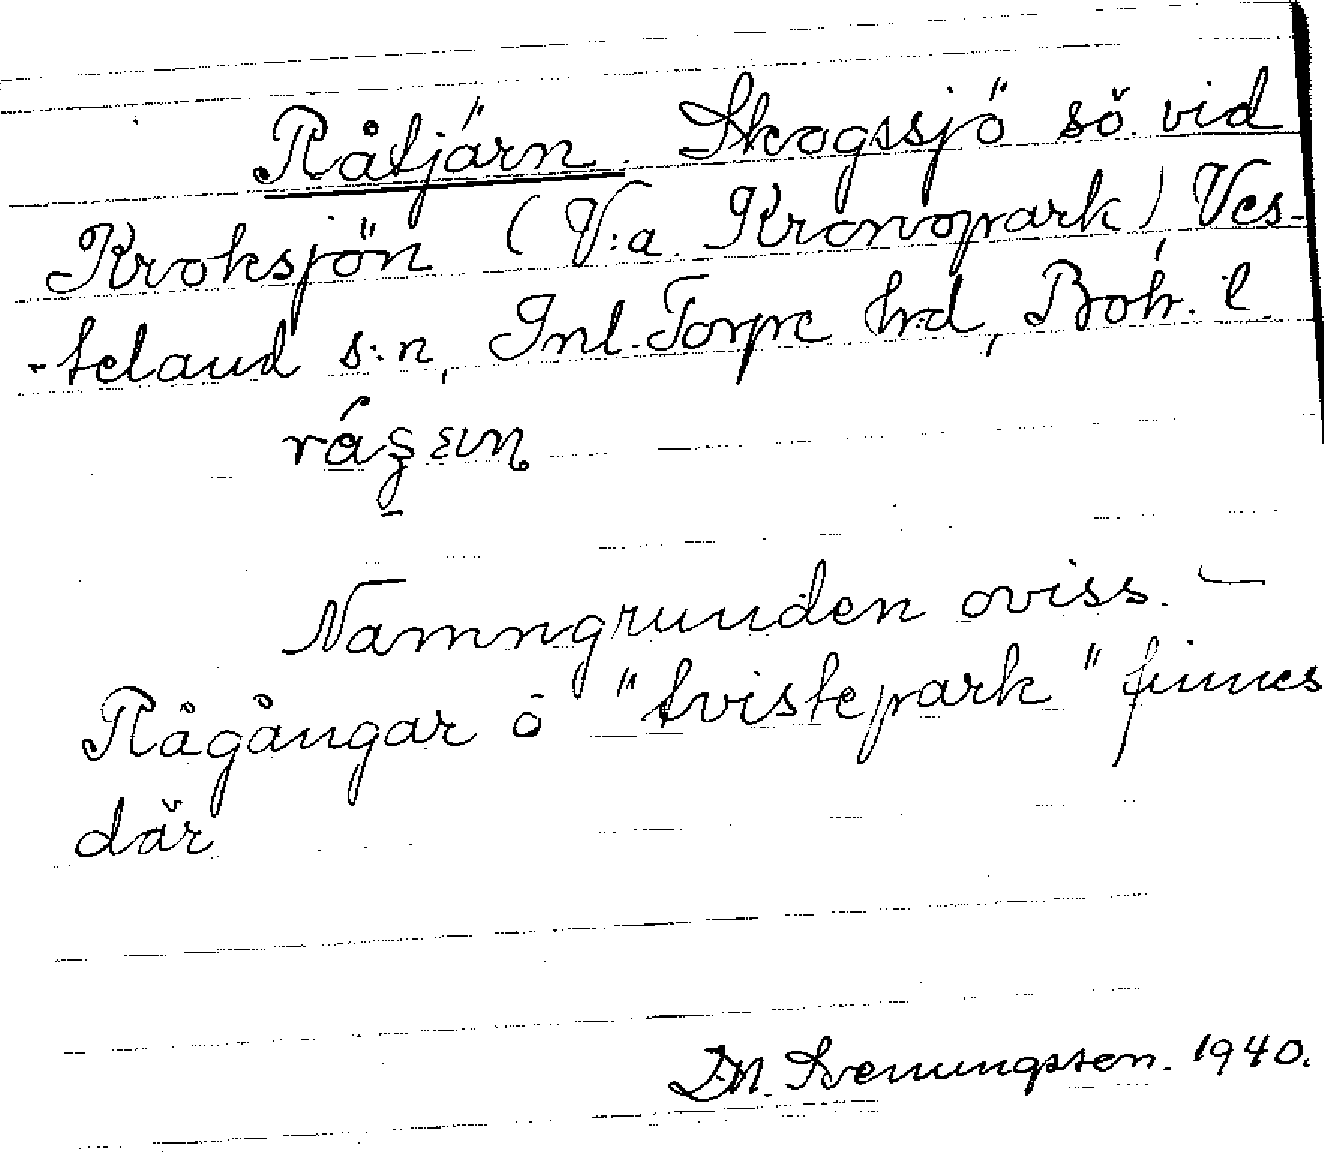 Råtjärn. Skogssjö sö vid
Kroksjön (V:a Kronopark), Ves-
-teland s:n, Inl. Torpe hrd, Boh. l.
Namngrunden oviss. –
Rågångar ö "tvistepark" finnes
där
D.N. Svenungsson. 1940.